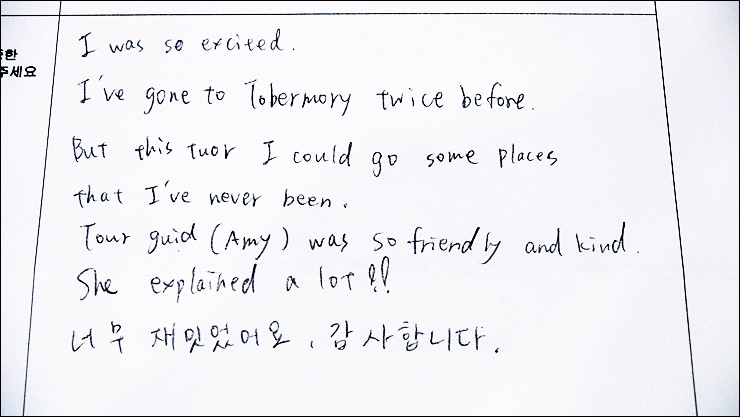 한
주세요
I was so excited.
I've gone to Tobermory twice before.
But this tuor I could go some places
that I've never been.
Tour guid (Amy) was so friendly and kind.
She explained a lot!!
너무 재밌었어요, 감사합니다.